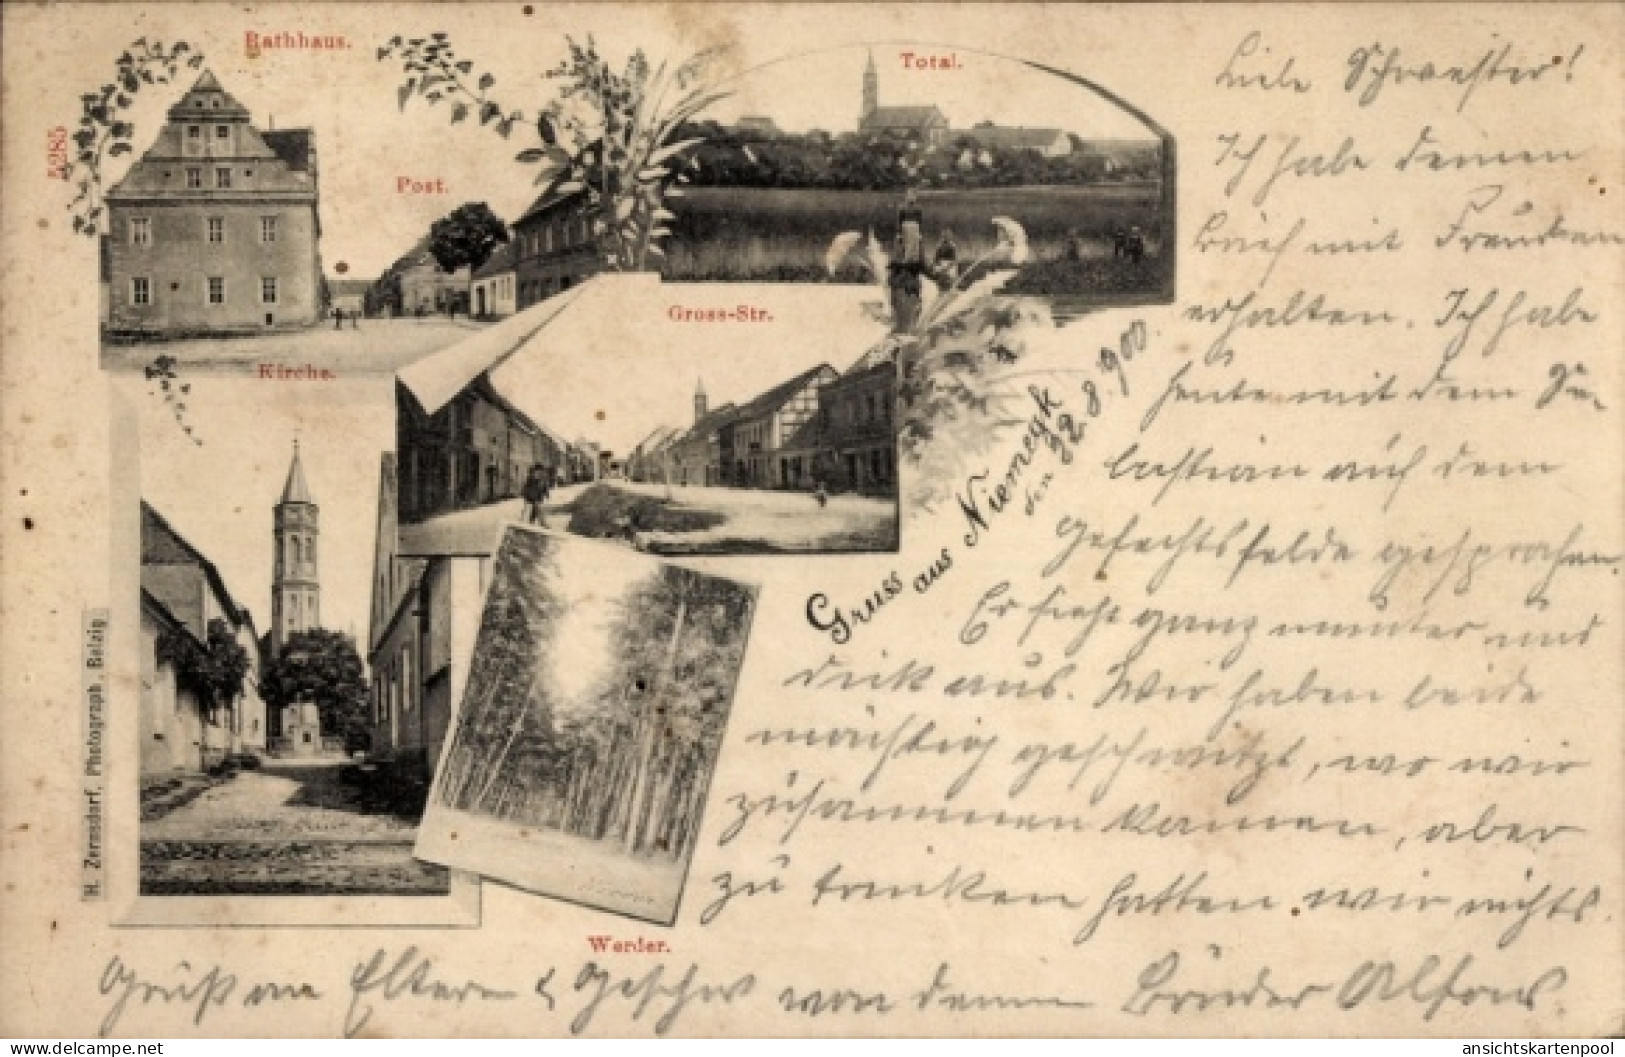 Rathhaus.
Total.
5285
Post.
Gross-Str.
Kirche.
Werder.
H. Zernsdorf, Photograph, Belzig
Gruss aus Niemegk
den 22.8.900.
Liebe Schwester!
Ich habe deinen
Brief mit Freuden
erhalten. Ich habe
heute mit dem Se-
bastian auf dem
Gefechtsfelde gesprochen.
Er sieht ganz munter und
dick aus. Wir haben beide
mächtig geschwitzt, wo wir
zusammen kamen, aber
zu trinken hatten wir nichts.
Gruß an Eltern & Geschw von deinem Bruder Alfons.
www.delcampe.net
ansichtskartenpool